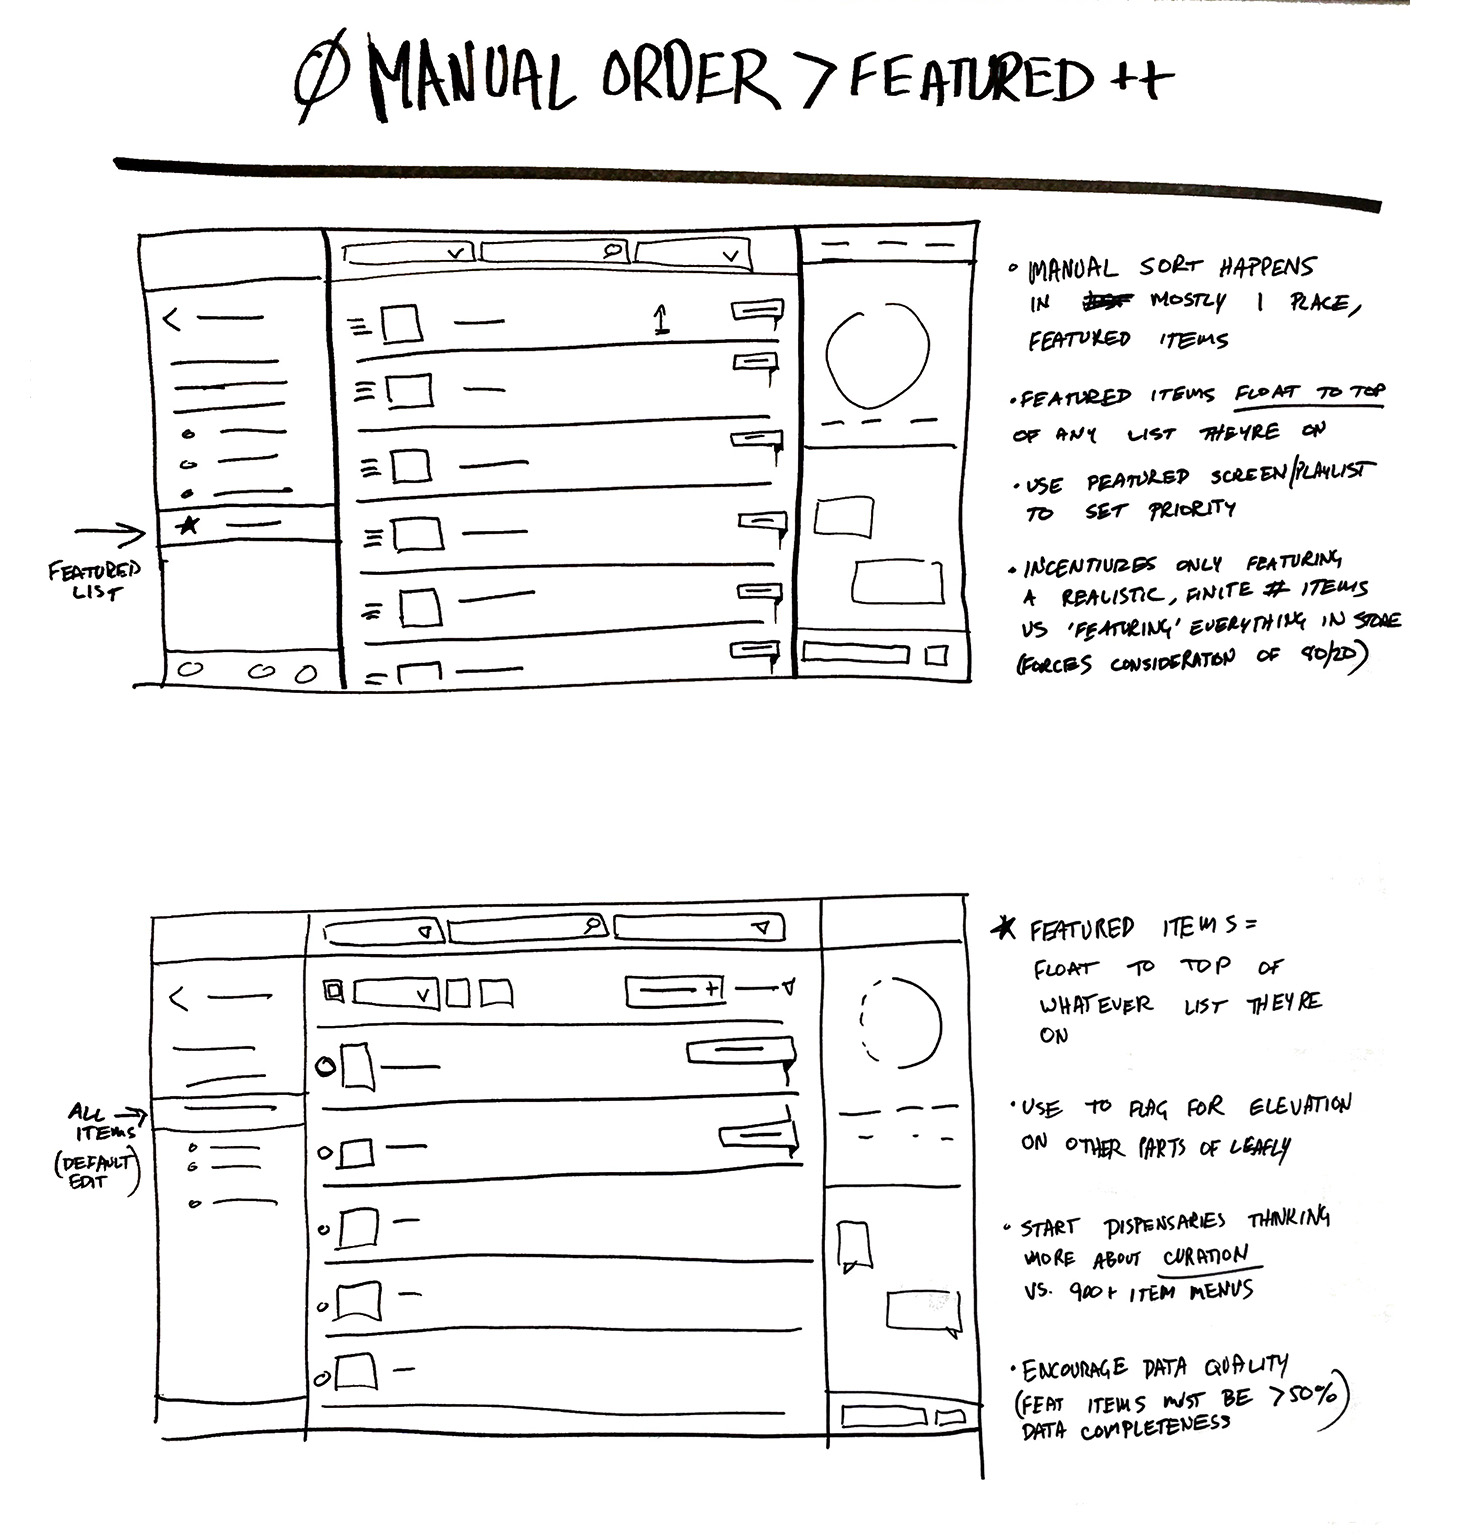 Ø MANUAL ORDER > FEATURED ++
• MANUAL SORT HAPPENS
IN MOSTLY 1 PLACE,
FEATURED ITEMS
• FEATURED ITEMS FLOAT TO TOP
OF ANY LIST THEYRE ON
• USE FEATURED SCREEN/PLAYLIST
TO SET PRIORITY
• INCENTIVIZES ONLY FEATURING
A REALISTIC, FINITE # ITEMS
VS 'FEATURING' EVERYTHING IN STORE
(FORCES CONSIDERATON OF 80/20)
FEATURED
LIST
★ FEATURED ITEMS =
FLOAT TO TOP OF
WHATEVER LIST THEYRE
ON
• USE TO FLAG FOR ELEVATION
ON OTHER PARTS OF LEAFLY
• START DISPENSARIES THINKING
MORE ABOUT CURATION
VS. 900+ ITEM MENUS
• ENCOURAGE DATA QUALITY
(FEAT ITEMS MUST BE >50%)
DATA COMPLETENESS
ALL →
ITEMS
(DEFAULT
EDIT)